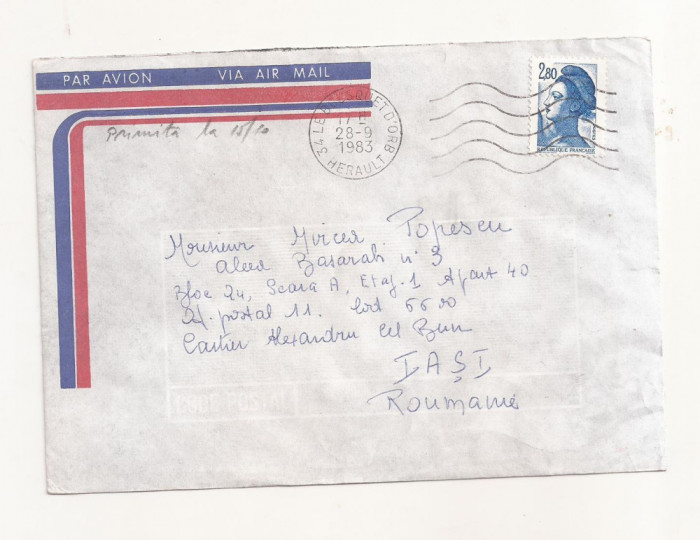 PAR AVION VIA AIR MAIL
primita la 15/10
34 LE BOUSQUET D'ORB
17 H
28-9
1983
HERAULT
2,80
REPUBLIQUE FRANÇAISE
Monsieur Mircea Popescu
Aleea Basarabi n° 3
Bloc 24, Scara A, Etaj 1 Apart 40
Of. postal 11. Cod 6600
Cartier Alexandru cel Bun
IAŞI
Roumanie
CODE POSTAL